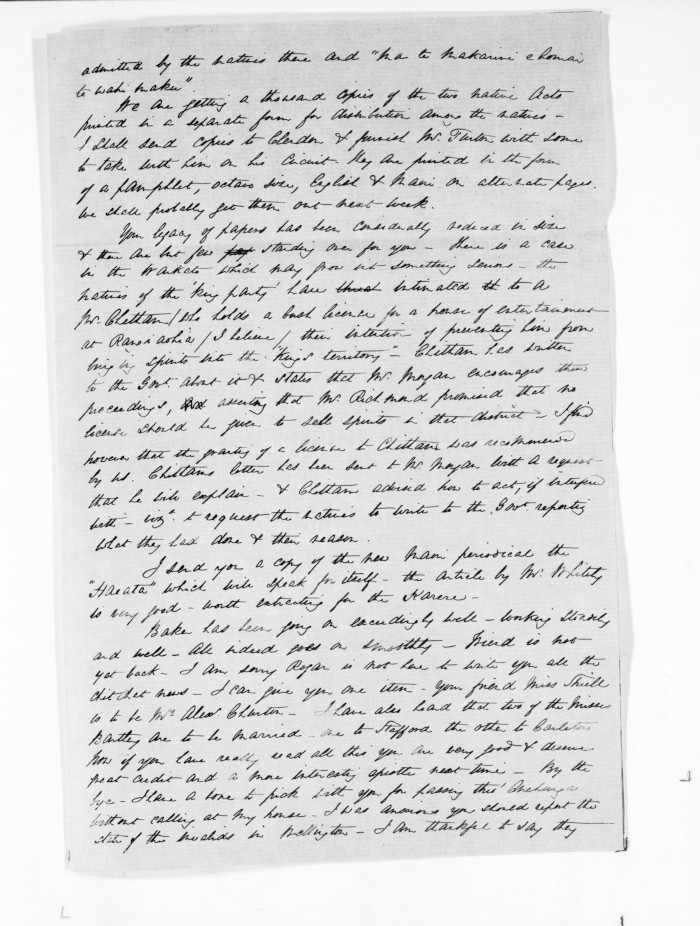 admitted by the natives there and "Ma te Makarini e homai
te wahi maku".
We are getting a thousand copies of the two Native Acts
printed in a separate form for distribution among the natives -
I shall send copies to Clendon & furnish Mr. Turton with some
to take with him on his Circuit. They are printed in the form
of a pamphlet, octavo size, English & Maori on alternate pages.
We shall probably get them out next week.
Your legacy of papers has been considerably reduced in size
& there are but few standing over for you - There is a case
in the Waikato which may grow into something serious - the
natives of the 'King party' have intimated to a
Mr. Chittam / who holds a bush license for a house of entertainment
at Rangiaohia / I believe / their intention of preventing him from
bringing spirits into the "King's territory" - Chittam has written
to the Govt about it & states that Mr. Morgan encourages their
proceedings, asserting that Mr. Richmond promised that no
license should be given to sell spirits in that district - I find
however that the granting of a license to Chittam was recommended
by us. Chittam's letter has been sent to Mr Morgan with a request
that he will explain - & Chittam advised how to act, if interfered
with - vizt. to request the natives to write to the Govr. reporting
what they had done & their reason.
I send you a copy of the new Maori periodical the
"Haeata" which will speak for itself - the article by Mr. Whitely
is very good - worth extracting for the Karere -
Baker has been going on exceedingly well - working steadily
and well - All indeed goes on smoothly - Friend is not
yet back - I am sorry Rogan is not here to write you all the
chit chat news - I can give you one item - Your friend Miss
is to be Mrs Alexr. Churton - I have also heard that two of the Misses
Bartley are to be married - one to Stafford the other to Carleton
Now if you have really read all this you are very good & deserve
great credit and a more interesting epistle next time - By the
bye - I have a bone to pick with you for passing thro' Onehunga
without calling at my house - I was anxious you should report the
state of the invalids in Wellington - I am thankful to say they